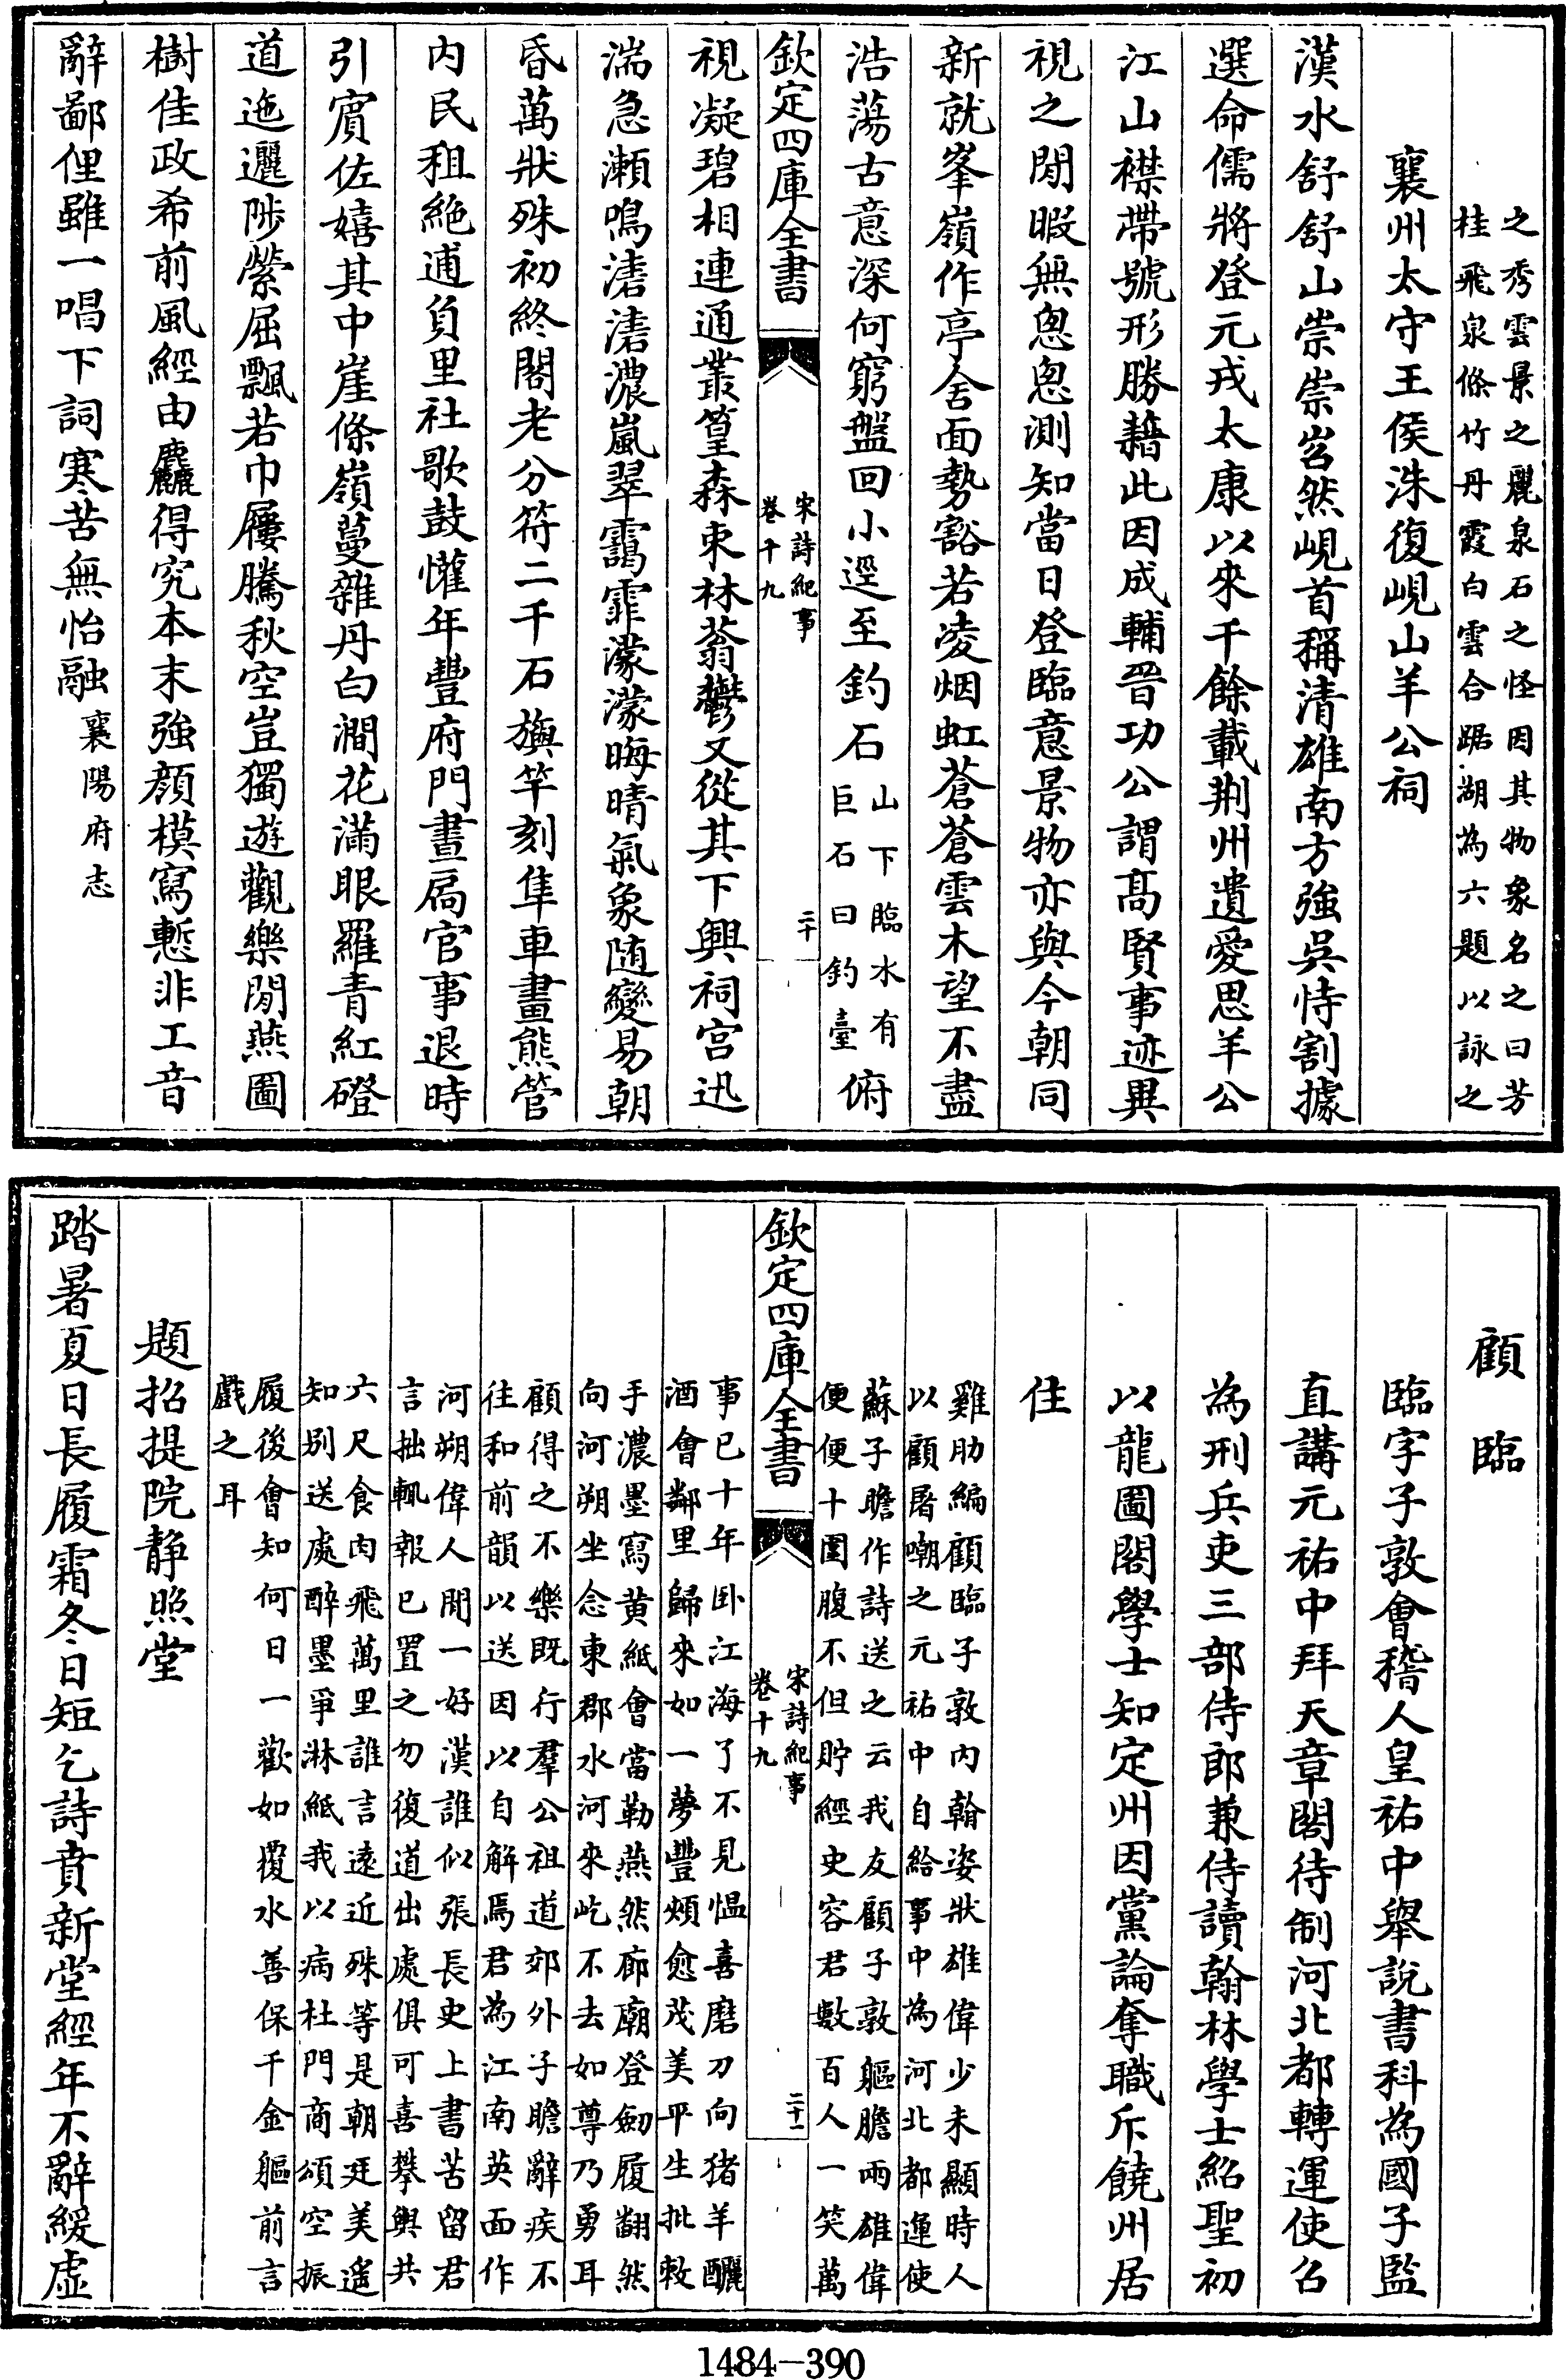 之秀雲景之麗泉石之怪因其物象名之曰芳
桂飛泉絛竹丹霞白雲合踞湖為六題以詠之
襄州太守王侯洙復峴山羊公祠
漢水舒舒山崇崇岧然峴首稱清雄南方強吳恃割據
選命儒將登元戎太康以來千餘載荆州遺愛思羊公
江山襟帶號形勝藉此因成輔晉功公謂髙賢事迹異
視之閒暇無悤悤測知當日登臨意景物亦與今朝同
新就峯嶺作亭舍面勢豁若凌烟虹蒼蒼雲木望不盡
浩蕩古意深何窮盤回小逕至釣石山下臨水有巨石曰釣臺俯
欽定四庫全書
宋詩紀事
卷十九
二十
視凝碧相連通叢篁森束林蓊鬱又從其下興祠宮迅
湍急瀨鳴濜濜濃嵐翠靄霏濛濛晦晴氣象随變易朝
昏萬狀殊初終閣老分符二千石旟竿刻隼車畫熊管
内民租絶逋負里社歌鼓懽年豐府門晝扃官事退時
引賓佐嬉其中崖絛嶺蔓雜丹白澗花滿眼羅青紅磴
道迤邐陟縈屈飄若巾屨騰秋空豈獨遊觀樂閒燕圖
樹佳政希前風經由麤得究本末強顔模寫慙非工音
辭鄙俚雖一唱下詞寒苦無怡融襄陽府志
顧臨
臨字子敦會稽人皇祐中舉說書科為國子監
直講元祐中拜天章閣待制河北都轉運使召
為刑兵吏三部侍郎兼侍讀翰林學士紹聖初
以龍圖閣學士知定州因黨論奪職斥饒州居
住
雞肋編顧臨子敦内翰姿狀雄偉少未顯時人
以顧屠嘲之元祐中自給事中為河北都運使
蘇子瞻作詩送之云我友顧子敦軀膽兩雄偉
便便十圍腹不但貯經史容君數百人一笑萬
欽定四庫全書
宋詩紀事
卷十九
二十一
事已十年卧江海了不見愠喜磨刀向猪羊釃
酒會鄰里歸來如一夢豐頰愈茂美平生批敕
手濃墨寫黄紙會當勒燕然廊廟登劒履翻然
向河朔坐念東郡水河來屹不去如尊乃勇耳
顧得之不樂既行羣公祖道郊外子瞻辭疾不
往和前韻以送因以自解焉君為江南英面作
河朔偉人閒一好漢誰似張長史上書苦留君
言拙輒報已置之勿復道出處俱可喜攀輿共
六尺食肉飛萬里誰言遠近殊等是朝廷美遙
知别送處醉墨爭淋紙我以病杜門商頌空振
履後會知何日一歡如覆水善保千金軀前言
戲之耳
題招提院静照堂
踏暑夏日長履霜冬日短乞詩賁新堂經年不辭緩虚
1484—390